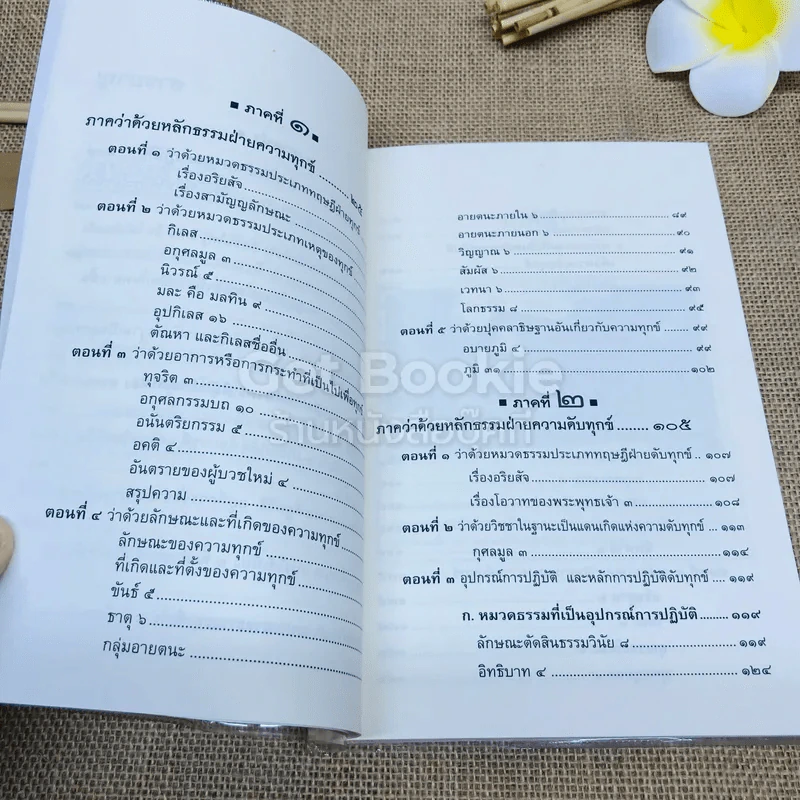 ■ ภาคที่ ๑ ■
ภาคว่าด้วยหลักธรรมฝ่ายความทุกข์ ........ ๒๕
ตอนที่ ๑ ว่าด้วยหมวดธรรมประเภททฤษฎีฝ่ายทุกข์
เรื่องอริยสัจ
เรื่องสามัญญลักษณะ
ตอนที่ ๒ ว่าด้วยหมวดธรรมประเภทเหตุของทุกข์
กิเลส
อกุศลมูล ๓
นิวรณ์ ๕
มละ คือ มลทิน ๙
อุปกิเลส ๑๖
ตัณหา และกิเลสชื่ออื่น
ตอนที่ ๓ ว่าด้วยอาการหรือการกระทำที่เป็นไปเพื่อทุกข์
ทุจริต ๓
อกุศลกรรมบถ ๑๐
อนันตริยกรรม ๕
อคติ ๔
อันตรายของผู้บวชใหม่ ๔
สรุปความ
ตอนที่ ๔ ว่าด้วยลักษณะและที่เกิดของความทุกข์
ลักษณะของความทุกข์
ที่เกิดและที่ตั้งของความทุกข์
ขันธ์ ๕
ธาตุ ๖
กลุ่มอายตนะ
อายตนะภายใน ๖ ........ ๘๙
อายตนะภายนอก ๖ ........ ๙๐
วิญญาณ ๖ ........ ๙๑
สัมผัส ๖ ........ ๙๒
เวทนา ๖ ........ ๙๓
โลกธรรม ๘ ........ ๙๕
ตอนที่ ๕ ว่าด้วยปุคคลาธิษฐานอันเกี่ยวกับความทุกข์ ........ ๙๙
อบายภูมิ ๔ ........ ๙๙
ภูมิ ๓๑ ........ ๑๐๒
Get Bookie
ร้านหนังสือบุ๊คกี้
■ ภาคที่ ๒ ■
ภาคว่าด้วยหลักธรรมฝ่ายความดับทุกข์ ........ ๑๐๕
ตอนที่ ๑ ว่าด้วยหมวดธรรมประเภททฤษฎีฝ่ายดับทุกข์ ... ๑๐๗
เรื่องอริยสัจ ........ ๑๐๗
เรื่องโอวาทของพระพุทธเจ้า ๓ ........ ๑๐๘
ตอนที่ ๒ ว่าด้วยวิชชาในฐานะเป็นแดนเกิดแห่งความดับทุกข์ .. ๑๑๓
กุศลมูล ๓ ........ ๑๑๔
ตอนที่ ๓ อุปกรณ์การปฏิบัติ และหลักการปฏิบัติดับทุกข์ ..... ๑๑๙
ก. หมวดธรรมที่เป็นอุปกรณ์การปฏิบัติ ........ ๑๑๙
ลักษณะตัดสินธรรมวินัย ๘ ........ ๑๑๙
อิทธิบาท ๔ ........ ๑๒๔